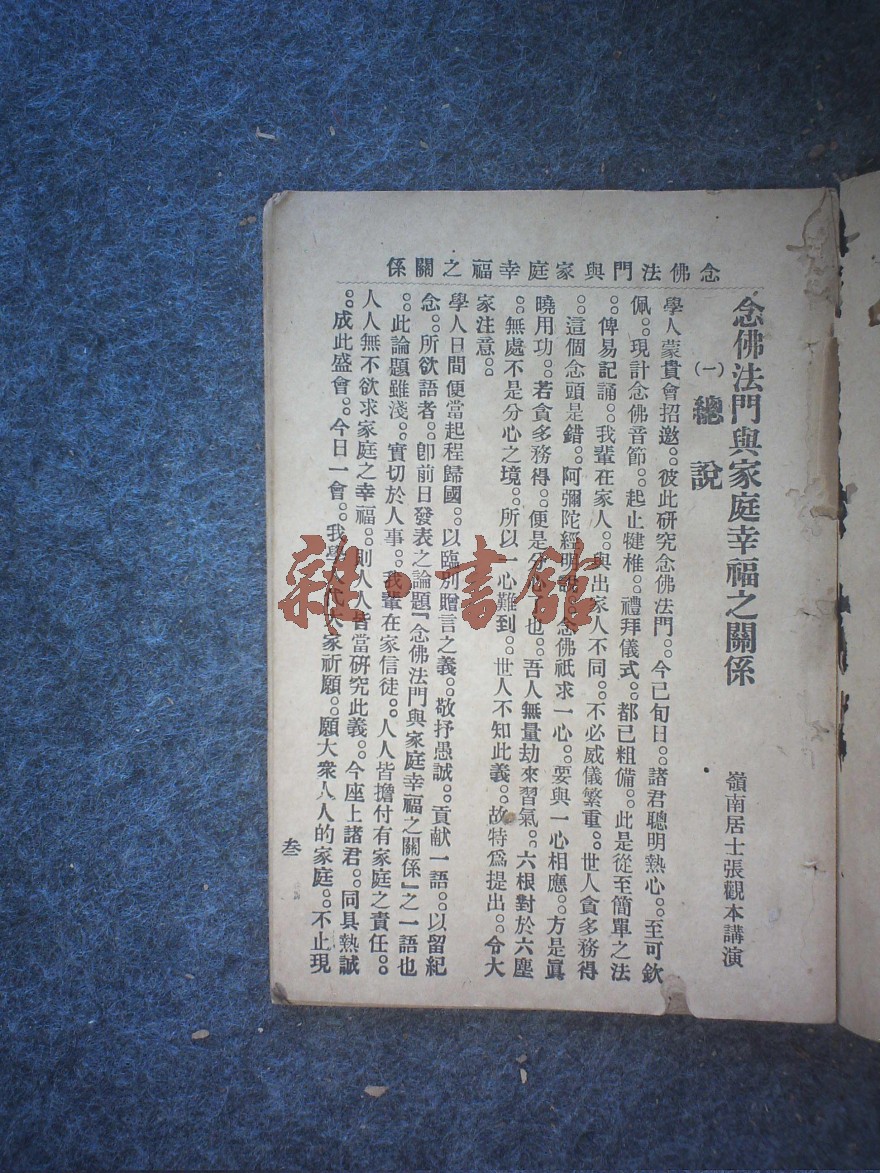 念佛法門與家庭幸福之關係
念佛法門與家庭幸福之關係
嶺南居士張觀本講演
(一)總說
學人蒙貴會招邀。。彼此研究念佛法門。。今已旬日。。諸君聰明熱心。。至可欽
佩。。現計念佛音節。。起止犍椎。。禮拜儀式。。都已粗備。。此是從至簡單之法
。。俾易記誦。。我輩在家人。。與出家人不同。。不必威儀繁重。。世人貪多務得
。。這個念頭是錯。。阿彌陀經明說。。念佛祇求一心。。要與一心相應。。方是眞
曉用功。。若貪多務得。。便是分心也。。吾人無量劫來習氣。。六根對於六塵
。。無處不是分心之境。。所以一心難到。。世人不知此義。。故特爲提出。。令大
家注意。。
學人日間便當起程歸國。。以臨別贈言之義。。敬抒愚誠。。貢献一語。。以留紀
念。。所欲語者。。卽前日發表之論題『念佛法門與家庭幸福之關係』之一語也
。。此論題雖淺。。實切於人事。。我輩在家信徒。。人人皆擔付有家庭之責任。。
人人無不欲求家庭之幸福。。則人人皆當研究此義。。今座上諸君。。同具熱誠
。。成此盛會。。今日一會。。我學人代大家祈願。。願大衆人人的家庭。。不止現
叁
雜·書館